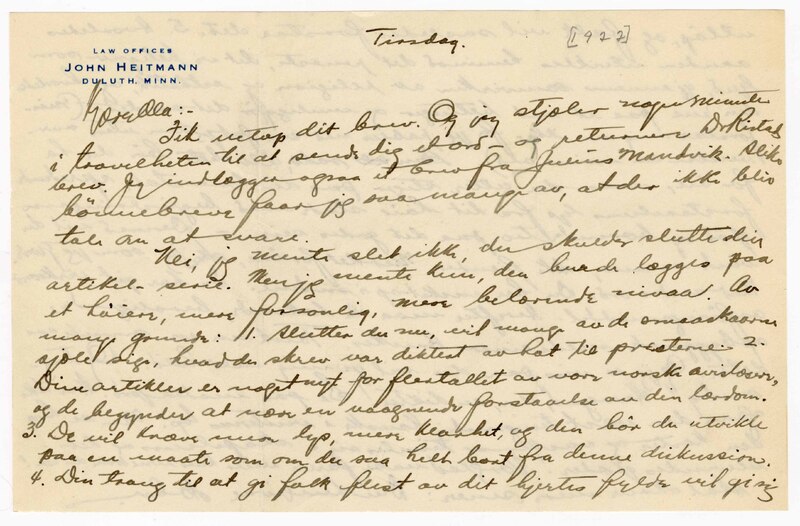 LAW OFFICES
JOHN HEITMANN
DULUTH, MINN.
Tirsdag.
[1922]
Kjære Ola:-
Fik netop dit brev. Og jeg stjæler nogen minutter
i travelheten til at sende dig et ord - og returnere Dr Ristads
brev. Jeg indlægger ogsaa et brev fra Julius Mandvik. Slike
bønnebreve faar jeg saa mange av, at der ikke blir
tale om at svare.
Nei, jeg mente slet ikke, du skulde slutte din
artikel-serie. Men jeg mente kun, den burde lægges paa
et høiere, mere forsonlig, mere belærende nivaa. Av
mange grunde: 1. Slutter du nu, vil mange av de
sjæle sige, hvad du skrev var diktert av hat til presterne. 2.
Dine artikler er noget nyt for flertallet av vore norske avislæsere,
og de begynder at nære en vaagnende forstaaelse av din lærdom.
3. De vil kræve mer lys, mere klarhet, og den bør du utvikle
paa en maate som om du saa helt bort fra denne diskussion.
4. Din trang til at gi folk flest av dit hjertes fylde vil gi sig